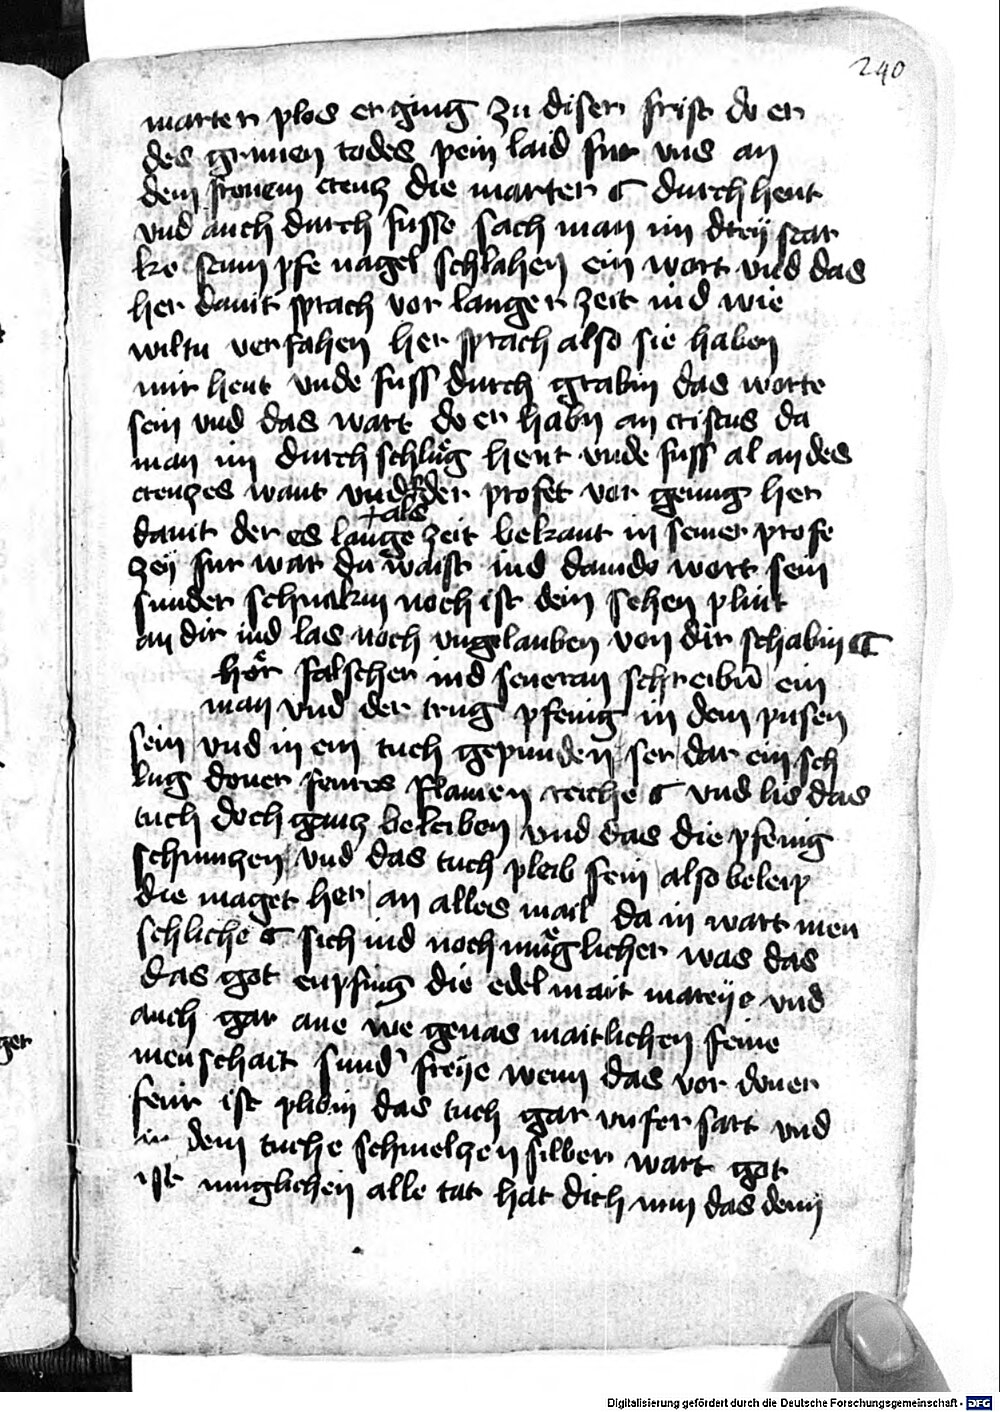 240
marter plos er ging zu diser frist do er
des grimen todes pein laid fur vns an
dem fronem creucz die marter ¶ durch hent
vnd auch durch fusse sach man im dreÿ star
ke pfe nagel schlahen ein wort vnd das
her dauit sprach vor langer zeit iud wie
wiltu verfahen her sprach also sie haben
mir hent vnde fuss durch grabin das worte
sein vnd das wart do er habn an cristus da
man im durch schlug hent vnde fuss al an des
creuczes want vnd der profet vor genug her
+ als
dauit der es lange zeit bekant in seiner profe
zeÿ fur war du waist iud dauido wort sein
sunder noch ist dein sehen plint
an dir iud las noch vngelauben von dir schabin ¶
hör falscher iud seueran schreibn ein
man vnd der trug pfenig in dem pusen
sein vnd in ein tuch gepunden ser dar ein sch
lug doner feures flamen reiche ¶ vnd lis das
tuch doch gancz beleiben vnd das die pfenig
schmuczen vnd das tuch pleib fein also beleip
die maget her an alles mail da in wart men
schliche ¶ sich iud noch muglicher was das
das got enpfing die edel mait mareye vnd
auch gar ane we genas maitlichen seine
menschait sund freÿe wenn das vor doner
feur ist plibin das tuch gar vnfersart vnd
in dem tuche schmelczen silber wart got
ist muglichen alle tat hat dich nun das denn
Digitalisierung gefördert durch die Deutsche Forschungsgemeinschaft - DFG